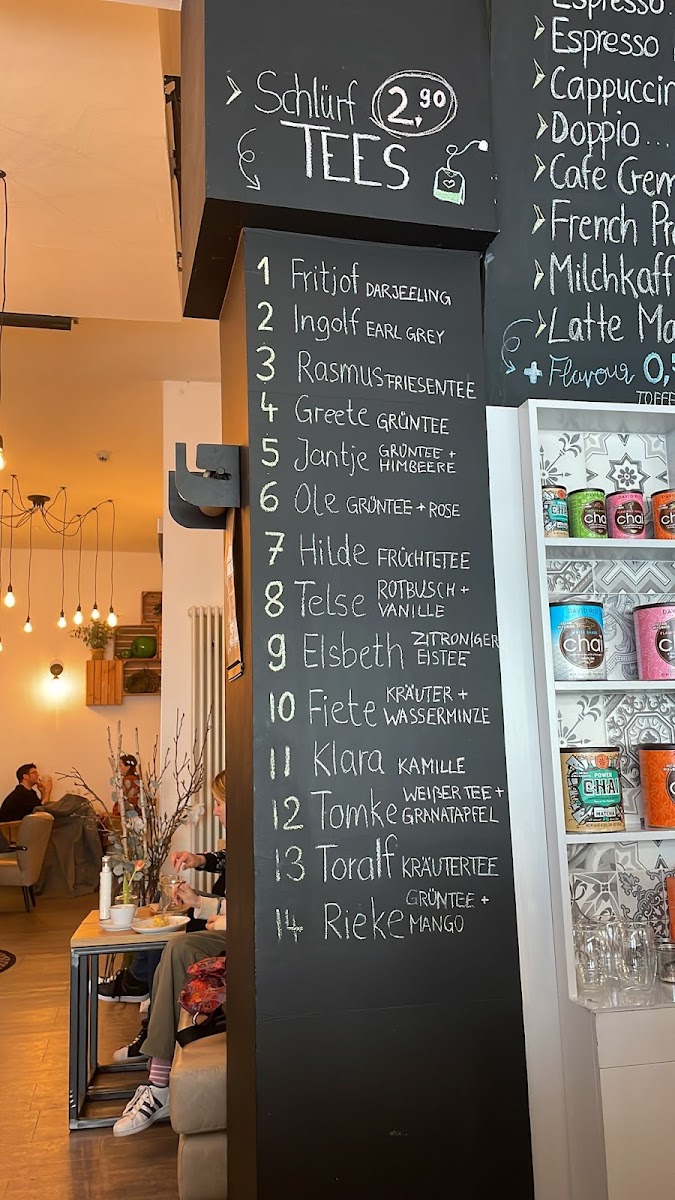 > Schlürf 2.90
TEES
1 Fritjof DARJEELING
2 Ingolf EARL GREY
3 Rasmus FRIESENTEE
4 Greete GRÜNTEE
5 Jantje GRÜNTEE +
HIMBEERE
6 Ole GRÜNTEE + ROSE
7 Hilde FRÜCHTETEE
8 Telse ROTBUSCH +
VANILLE
9 Elsbeth ZITRONIGER
EISTEE
10 Fiete KRÄUTER +
WASSERMINZE
11 Klara KAMILLE
12 Tomke WEIßER TEE +
GRANATAPFEL
13 Toralf KRÄUTERTEE
14 Rieke GRÜNTEE +
MANGO
Espresso..
> Espresso
> Cappuccin
> Doppio...
> Cafe Crem
> French Pr
> Milchkaff
> Latte Ma
+ Flavour 0,
TOFFE
chai
chai
DAVID RIO
chai
chai
POWER
CHAI
MATCHA